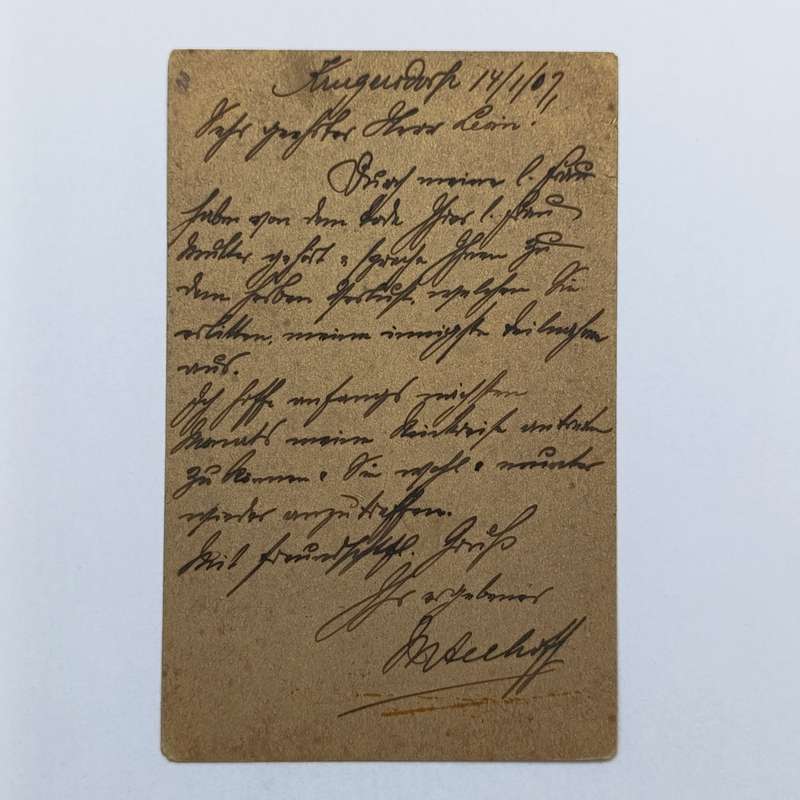 Krugersdorp 14/1/07
Sehr geehrter Herr Levin!
Durch meine l. Frau
habe von dem Tode Ihrer l. Frau
Mutter gehört & spreche Ihnen zu
dem herben Verlust, welchen Sie
erlitten, meine innigste Teilnahme
aus.
Ich hoffe anfangs nächsten
Monats meine Rückreise antreten
zu können & Sie wohl & munter
wieder anzutreffen.
Mit freundschftl. Gruß
Ihr ergebener